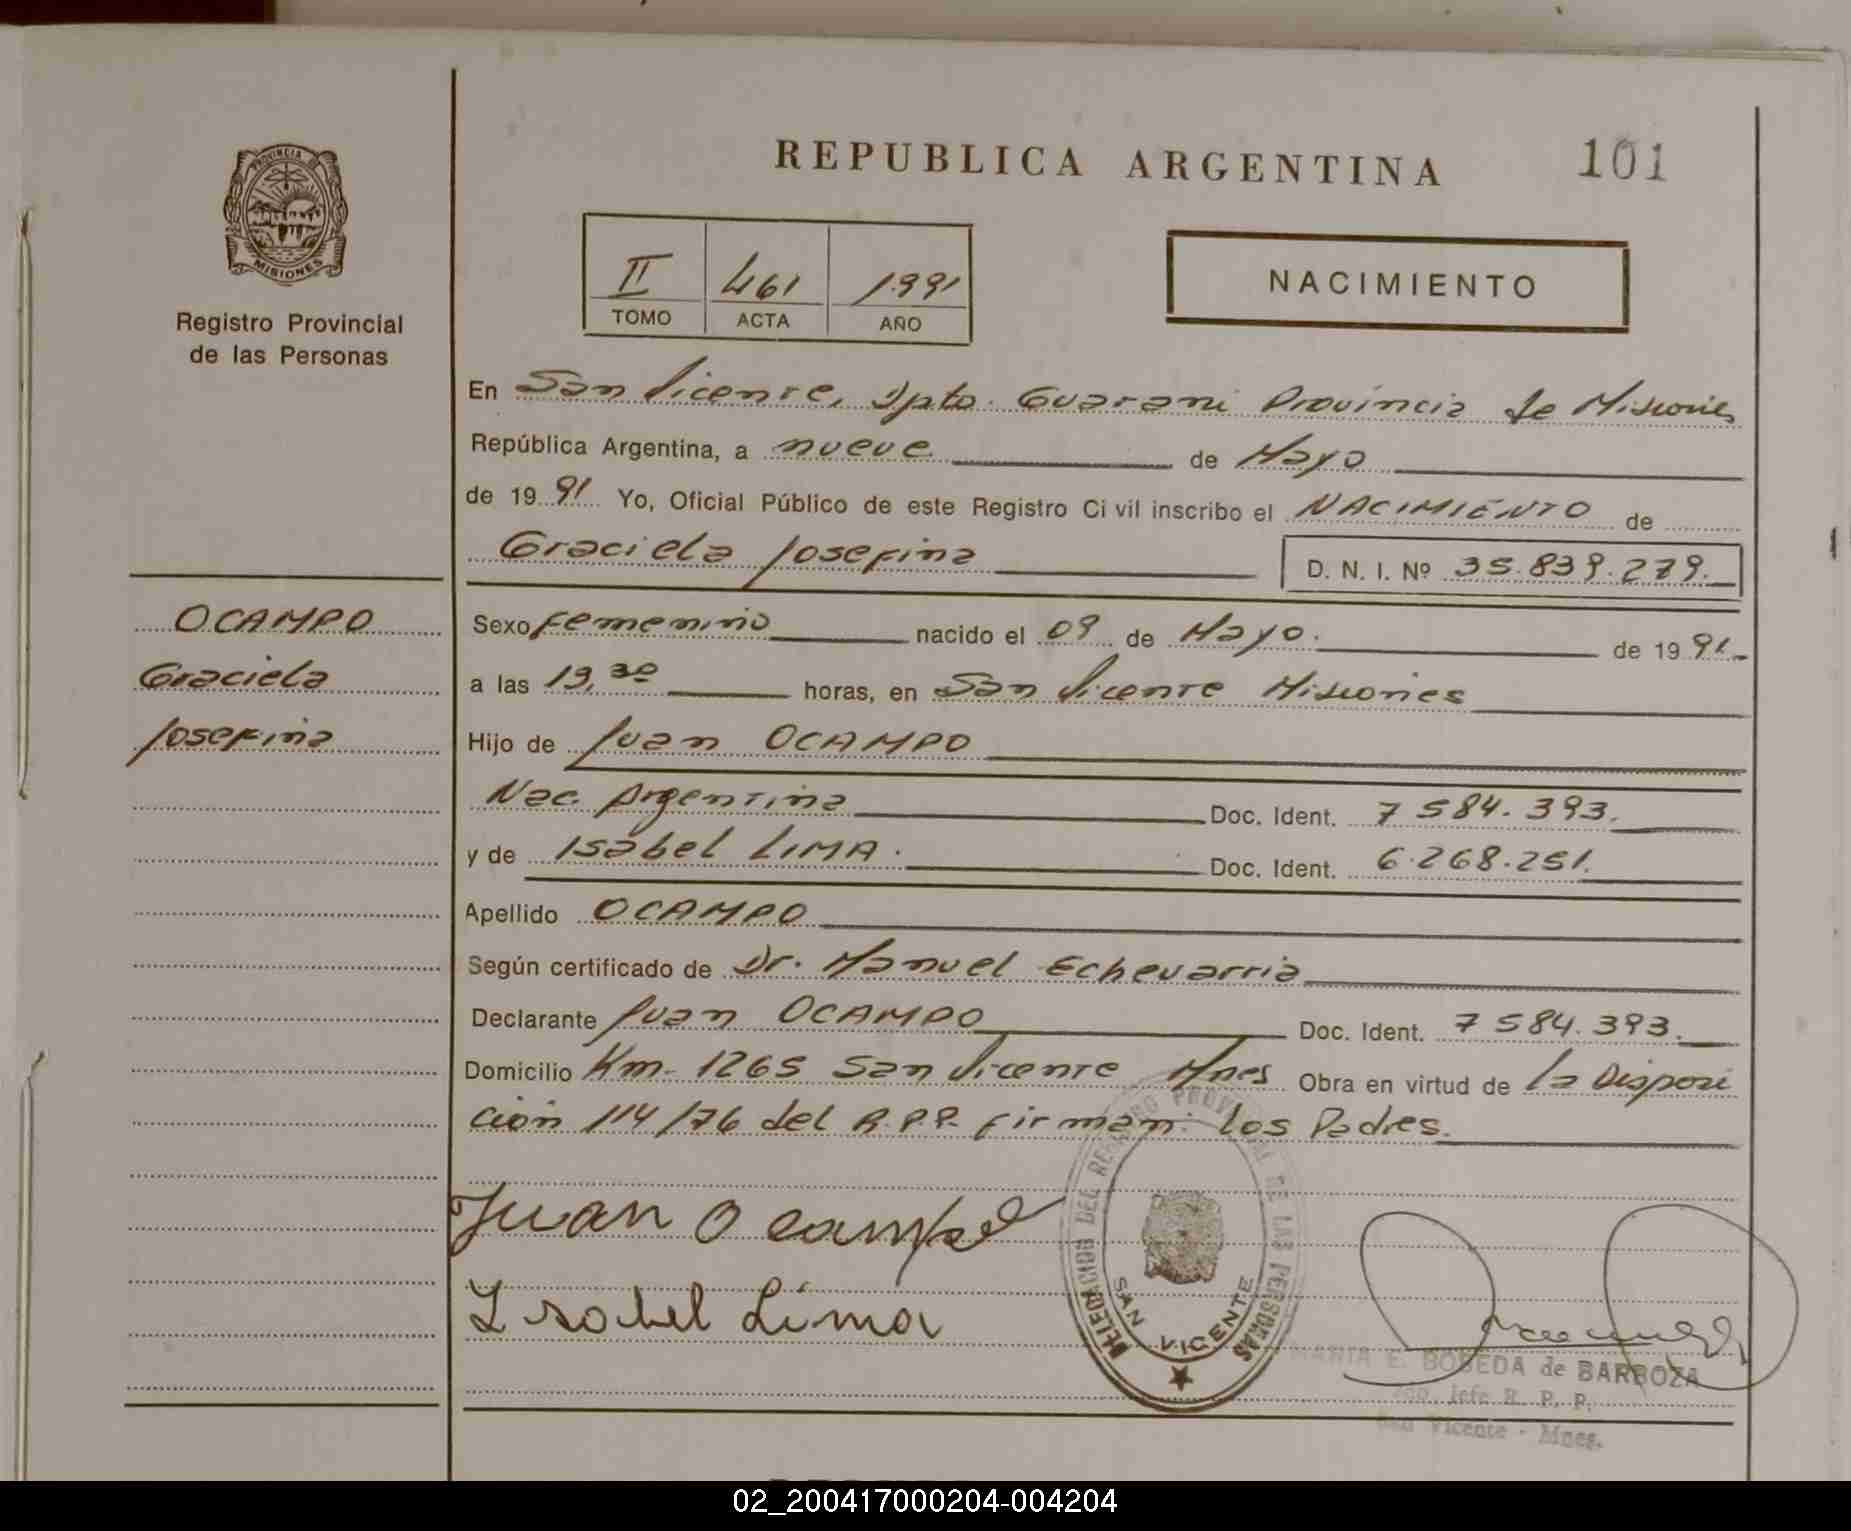 REPUBLICA ARGENTINA
101
PROVINCIA DE
MISIONES
Registro Provincial
de las Personas
II 461 1991
TOMO ACTA AÑO
NACIMIENTO
En San Vicente, Dpto. Guarani Provincia de Misiones
República Argentina, a nueve de Mayo
de 1991 Yo, Oficial Público de este Registro Civil inscribo el NACIMIENTO de
Graciela Josefina D. N. I. Nº 35.839.279.
OCAMPO
Graciela
Josefina
Sexo Femenino nacido el 09 de Mayo. de 1991.
a las 19,30 horas, en San Vicente Misiones
Hijo de Juan OCAMPO
Nac. Argentina Doc. Ident. 7584.393.
y de Isabel LIMA. Doc. Ident. 6.268.251.
Apellido OCAMPO
Según certificado de Dr. Manuel Echevarria
Declarante Juan OCAMPO Doc. Ident. 7584.393.
Domicilio Km. 1265 San Vicente Mnes Obra en virtud de la Disposi
ción 114/76 del R.P.P. Firman: los Padres.
Juan Ocampo
Isabel Lima
DELEGACION DEL REGISTRO PROVINCIAL DE LAS PERSONAS
SAN VICENTE
MARIA E. BOBEDA de BARBOZA
Jefe R. P. P.
San Vicente - Mnes.
02_200417000204-004204